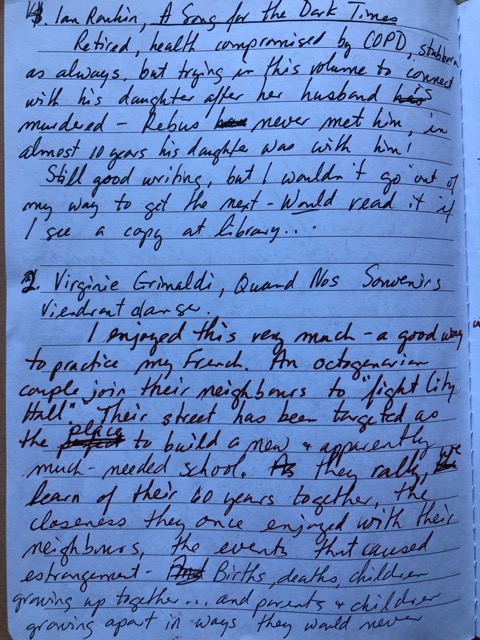 1. Ian Rankin, A Song for the Dark Times
Retired, health compromised by COPD, stubborn
as always, but trying in this volume to connect
with his daughter after her husband is
murdered - Rebus never met him, in
almost 10 years his daughter was with him!
Still good writing, but I wouldn't go out of
my way to get the next - Would read it if
I see a copy at library...
2. Virginie Grimaldi, Quand Nos Souvenirs
Viendront danser.
I enjoyed this very much - a good way
to practice my French. An octogenarian
couple join their neighbours to "fight City
Hall". Their street has been targeted as
the place to build a new & apparently
much-needed school. As they rally, we
learn of their 60 years together, the
closeness they once enjoyed with their
neighbours, the events that caused
estrangement - Births, deaths, children
growing up together... and parents & children
growing apart in ways they would never